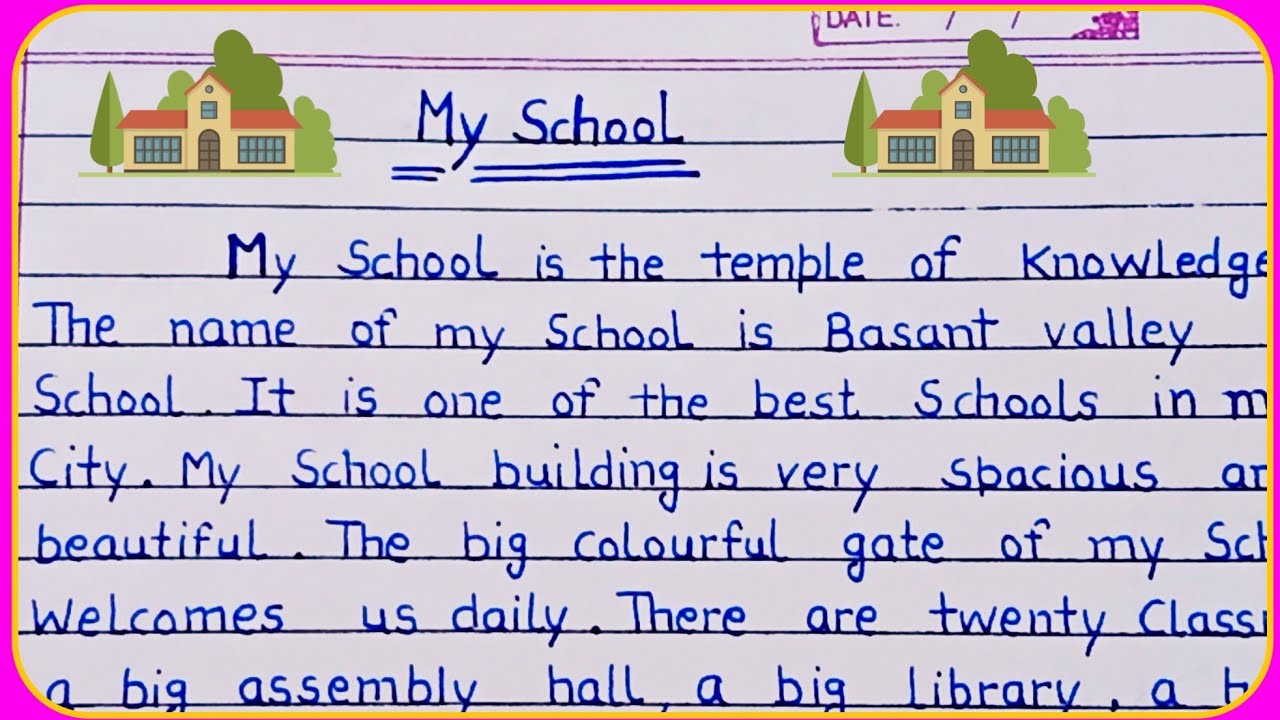 DATE: / /
My School
My School is the temple of Knowledge
The name of my School is Basant valley
School. It is one of the best Schools in m
City. My School building is very spacious an
beautiful. The big colourful gate of my Sch
Welcomes us daily. There are twenty Class
a big assembly hall, a big library, a